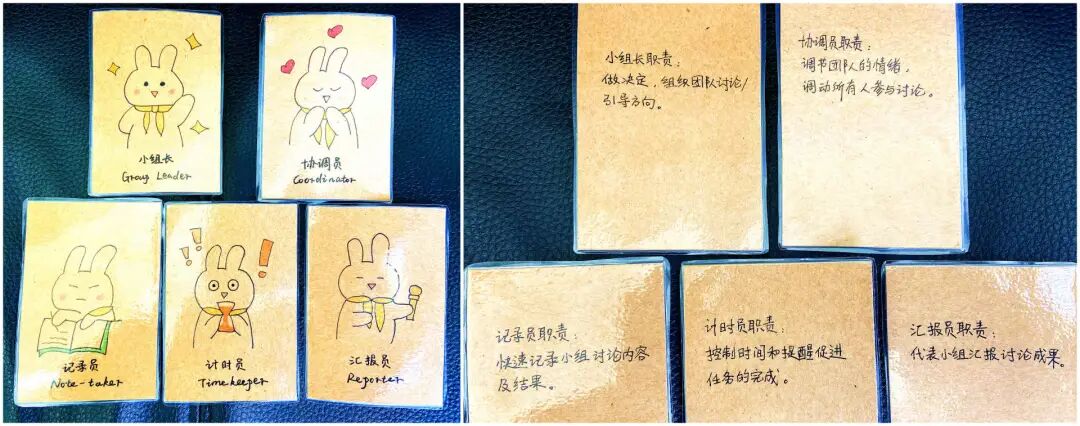 小组长
Group Leader
协调员
Coordinator
记录员
Note-taker
计时员
Timekeeper
汇报员
Reporter
小组长职责：
做决定，组织团队讨论/
引导方向。
协调员职责：
调节团队的情绪，
调动所有人参与讨论。
记录员职责：
快速记录小组讨论内容
及结果。
计时员职责：
控制时间和提醒促进
任务的完成。
汇报员职责：
代表小组汇报讨论成果。